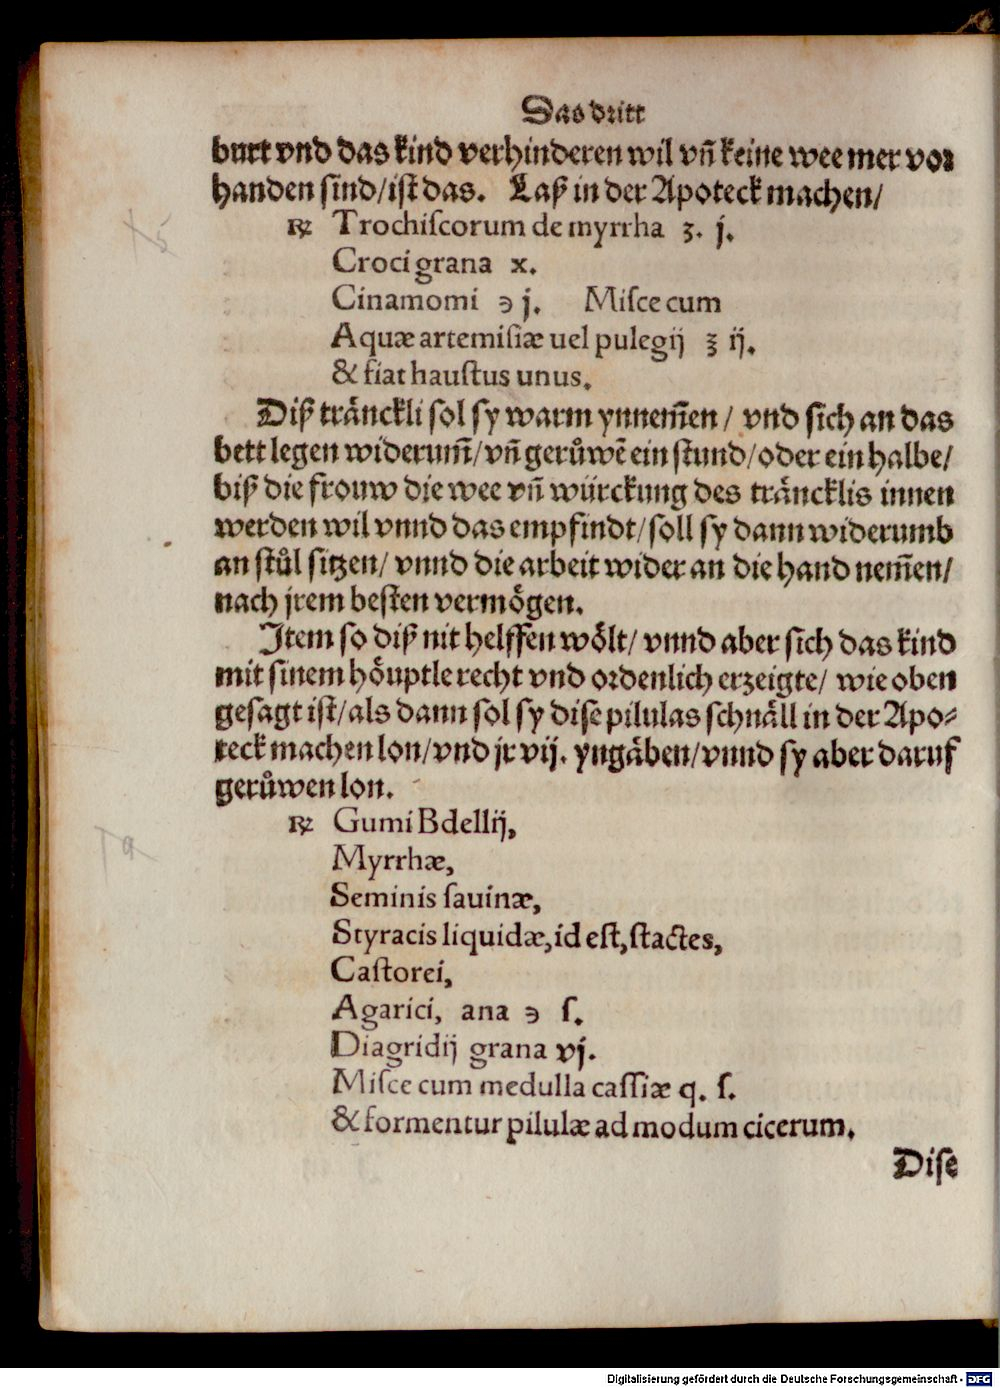 Das dritt
burt vnd das kind verhinderen wil vñ keine wee mer vor
handen sind/ist das. Laß in der Apoteck machen/
℞ Trochiſcorum de myrrha ʒ. j.
Croci grana x.
Cinamomi ℈ j. Miſce cum
Aquæ artemiſiæ uel pulegij ℥ ij.
& fiat hauſtus unus.
Diß tränckli sol sy warm ynnem̃en / vnd sich an das
bett legen widerum̃/vñ gerůwẽ ein stund/oder ein halbe/
biß die frouw die wee vñ würckung des träncklis innen
werden wil vnnd das empfindt/soll sy dann widerumb
an stůl sitzen/ vnnd die arbeit wider an die hand nem̃en/
nach jrem besten vermögen.
Item so diß nit helffen wölt/ vnnd aber sich das kind
mit sinem höuptle recht vnd ordenlich erzeigte/ wie oben
gesagt ist/als dann sol sy dise pilulas schnäll in der Apo⸗
teck machen lon/vnd jr vij. yngäben/vnnd sy aber daruf
gerůwen lon.
℞ Gumi Bdellij,
Myrrhæ,
Seminis ſauinæ,
Styracis liquidæ, id eſt, ſtactes,
Caſtorei,
Agarici, ana ℈ ſ.
Diagridij grana vj.
Miſce cum medulla caſſiæ q. ſ.
& formentur pilulæ ad modum cicerum.
Dise
Digitalisierung gefördert durch die Deutsche Forschungsgemeinschaft - DFG